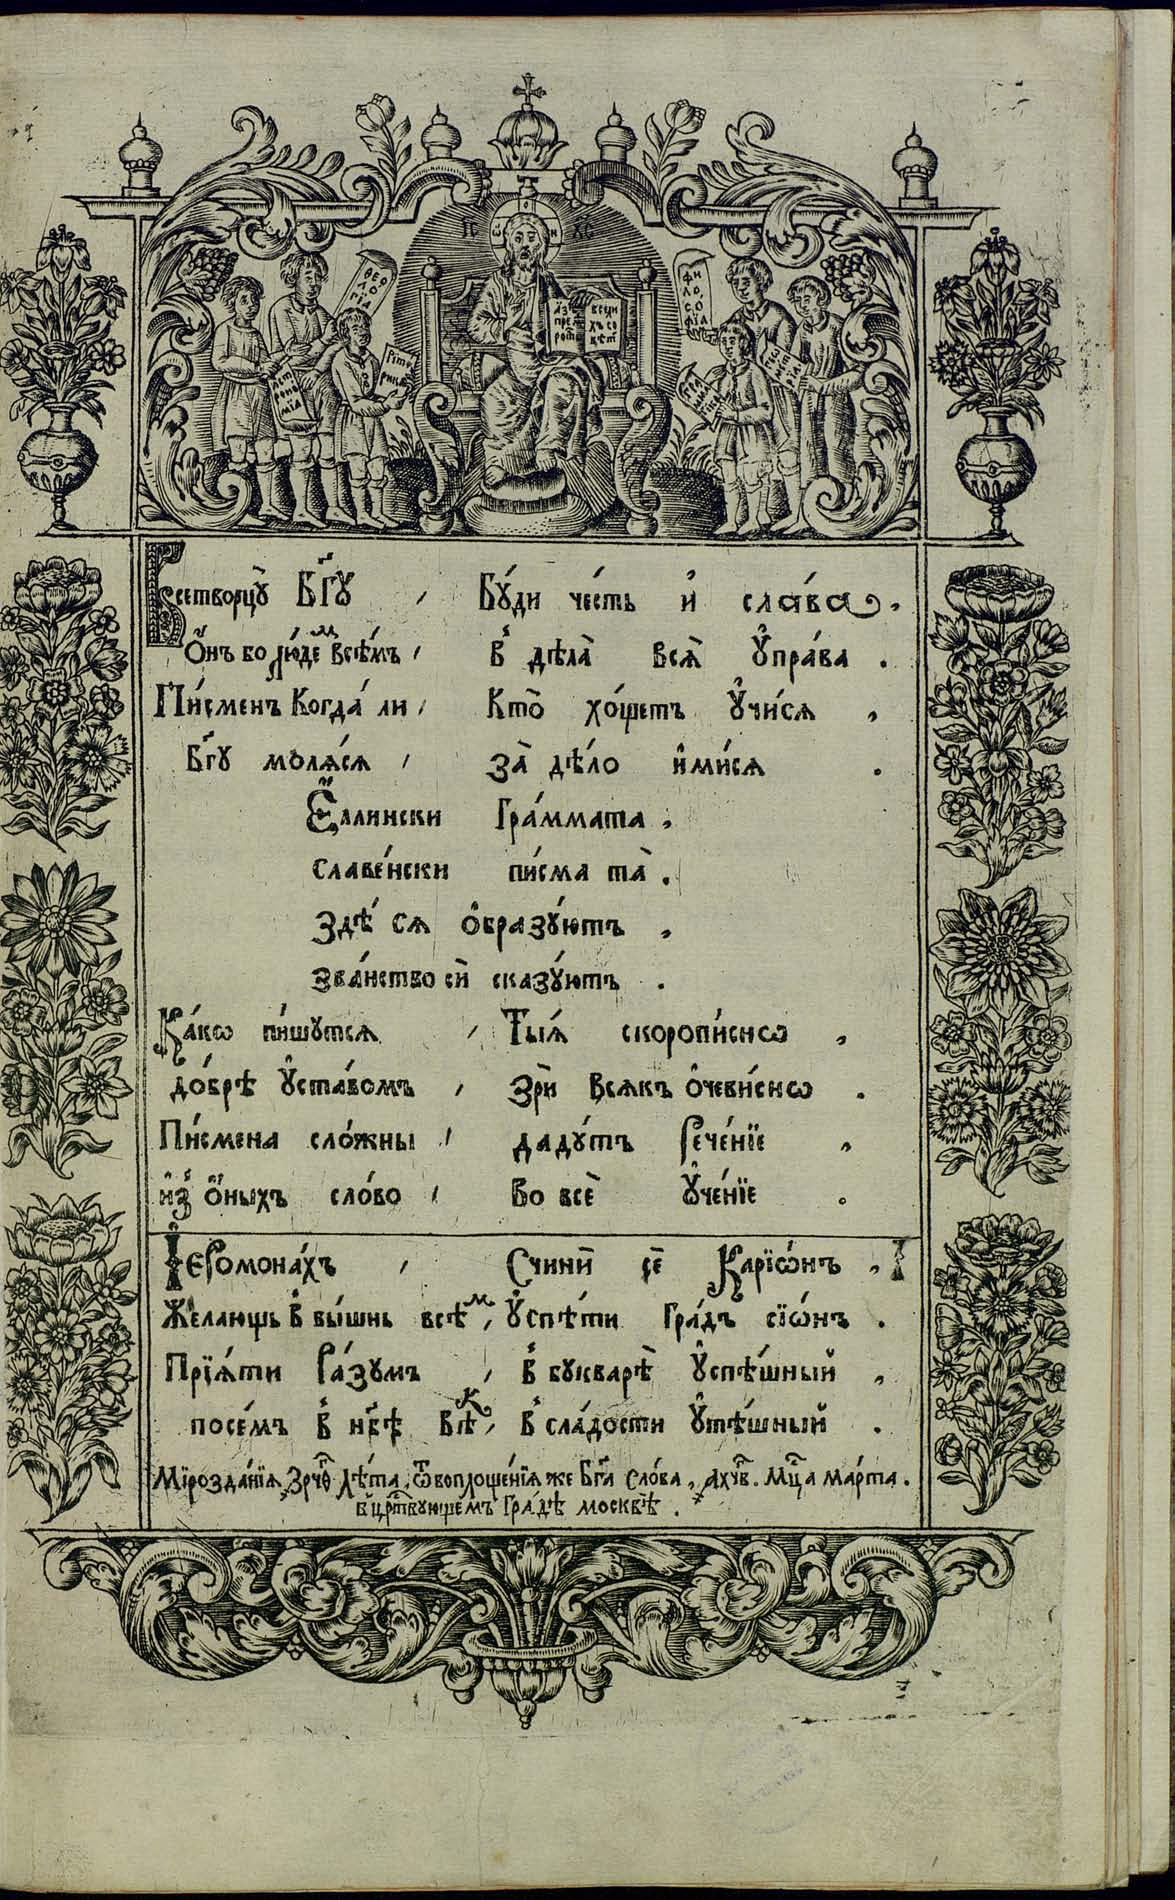 І҃С Х҃С
Ѡ О Н
ѲЕОЛОГІА
ФИЛОСОФІА
Всетворцꙋ̀ Бг҃ꙋ , Бꙋ́ди че́сть и҆ сла́ва ,
Ѻ҆́нъ бо лю́деⷨ всѣ́мъ , в̾ дѣла̀ всѧ̀ ᲂу҆пра́ва .
Пи́сменъ Когда́ ли , Кто̀ хо́щетъ ᲂу҆чи́сѧ ,
Бг҃ꙋ молѧ́сѧ , за̀ дѣ́ло и҆ми́сѧ .
Е҆́ллински Гра́ммата ,
славе́нски пи́сма та̀ .
здѣ́ сѧ ѻ҆бразꙋ́ютъ ,
зва́нство сѝ сказꙋ́ютъ .
Ка́кѡ пи́шꙋтсѧ , Ты́ѧ скоропи́снѡ ,
до́брѣ ᲂу҆ста́вомъ , зрѝ всѧкъ ѻ҆чеви́снѡ .
Пи́смена сло́жны , дадꙋ́тъ Рече́нїе ,
из̾ ѻ҆́ныхъ сло́во , во всѐ ᲂу҆че́нїе .
Іеромона́хъ , Счинѝ сѐ Карїѡ́нъ ,
Жела́ющь в̾ вы́шнь всѣⷨ , ᲂу҆спѣ́ти Гра́дъ сїѡ́нъ .
Прїѧ́ти Ра́зꙋмъ , в̾ бꙋкварѐ ᲂу҆спѣ́шный ,
посе́мъ в̾ нб҃ѣ вѣⷦ , в̾ сла́дости ᲂу҆тѣ́шный .
Мїрозда́нїѧ ҂зрч҃ѳ лѣ́та , Ѿ воплоще́нїѧ же Бг҃а сло́ва , ҂ахч҃в . Мц҃а ма́рта .
в̾ црⷭ҇твꙋющемъ Гра́дѣ москвѣ̀ .